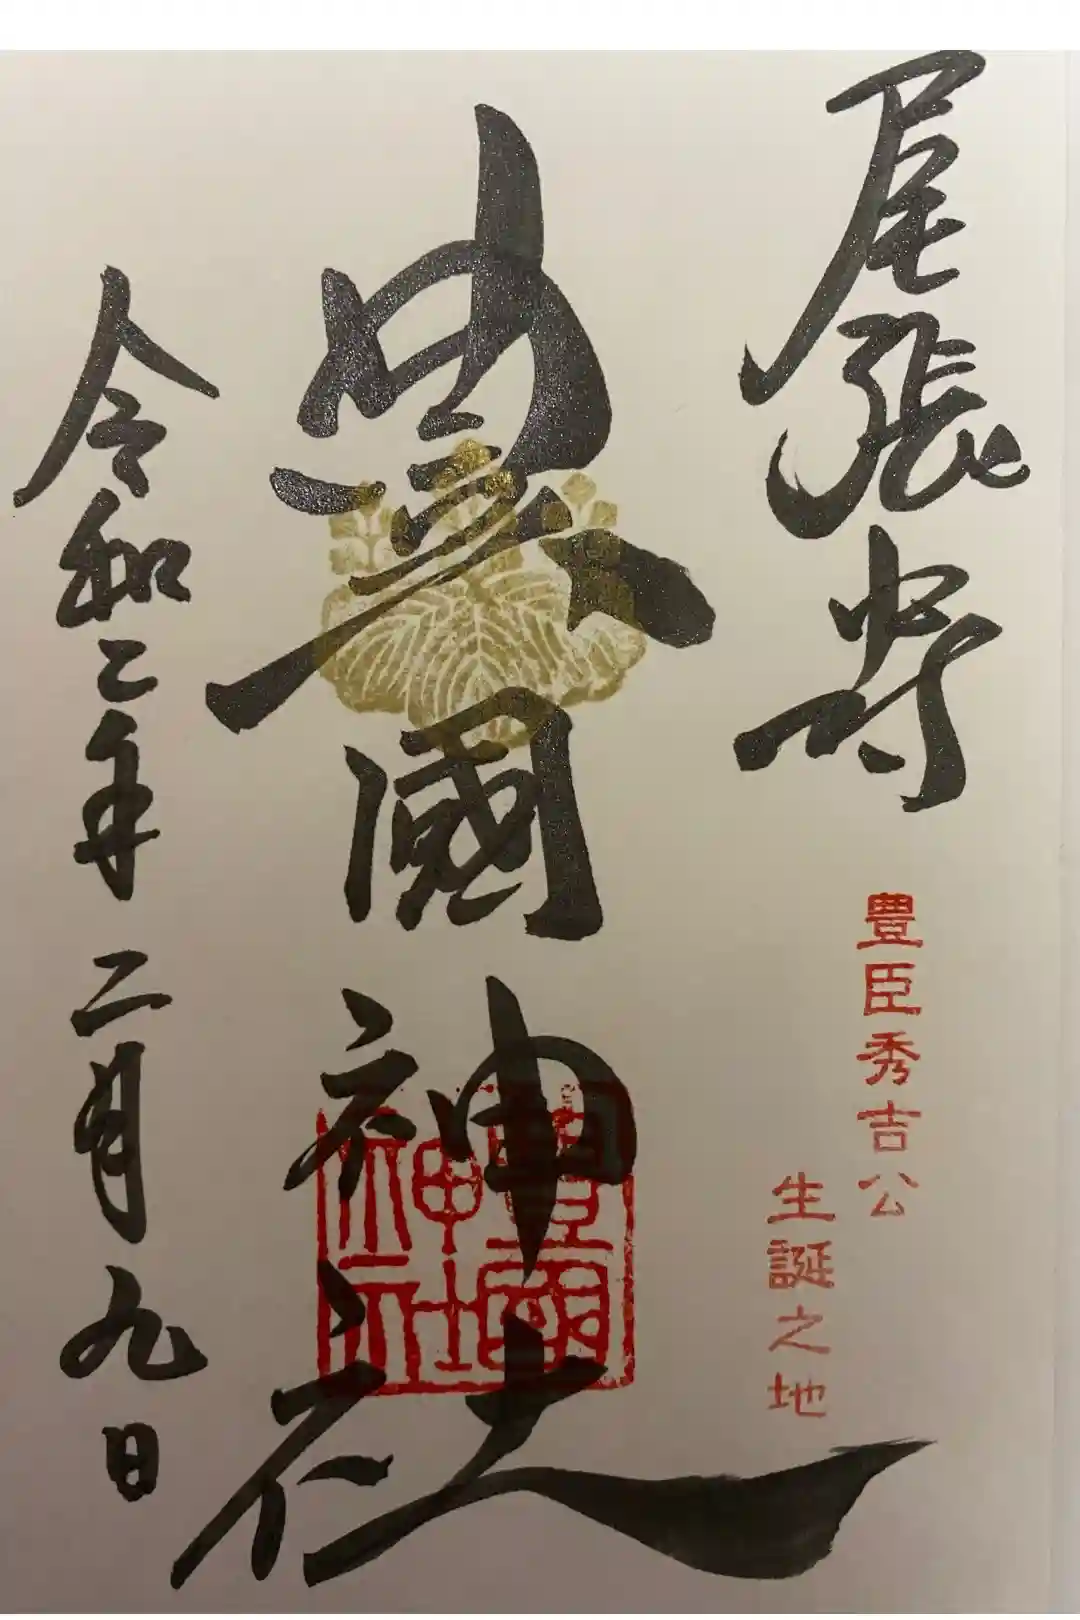 尾張中村
豊臣秀吉公
生誕之地
豊國神社
豊國
神社
令和二年二月九日